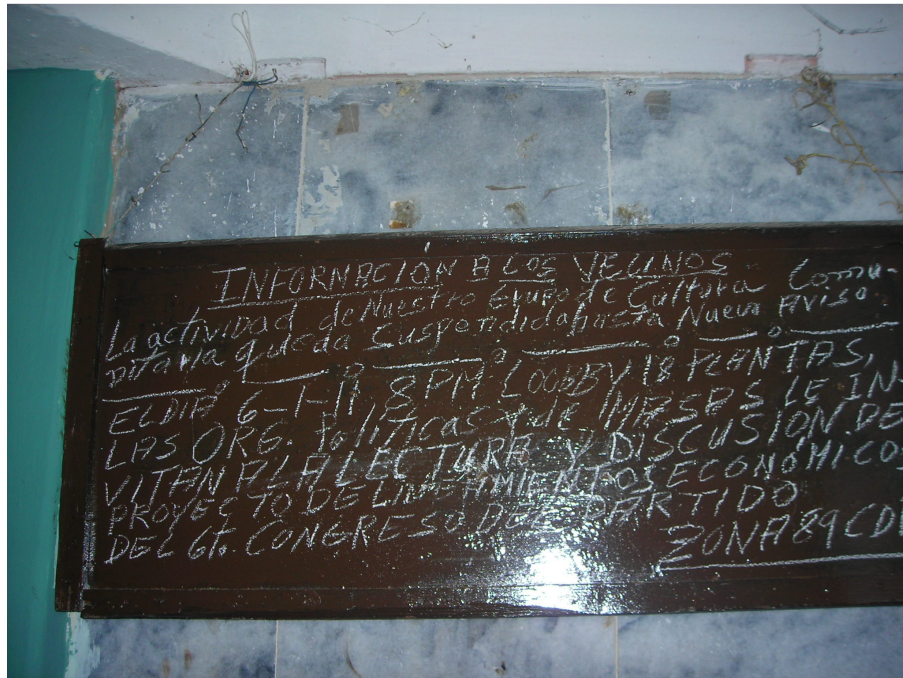 INFORMACION A LOS VECINOS
La actividad de Nuestro Grupo de Cultura Comu-
nitaria queda Suspendida hasta Nuevo Aviso.
EL DIA 6-1-11 8 PM LOOBBY 18 PLANTAS,
LAS ORG. Políticas y de MASAS LE IN-
VITAN A LA LECTURA Y DISCUSIÓN DE
PROYECTO DE LINEAMIENTOS ECONÓMICOS
DEL 6to. CONGRESO DEL PARTIDO
ZONA 89 CD